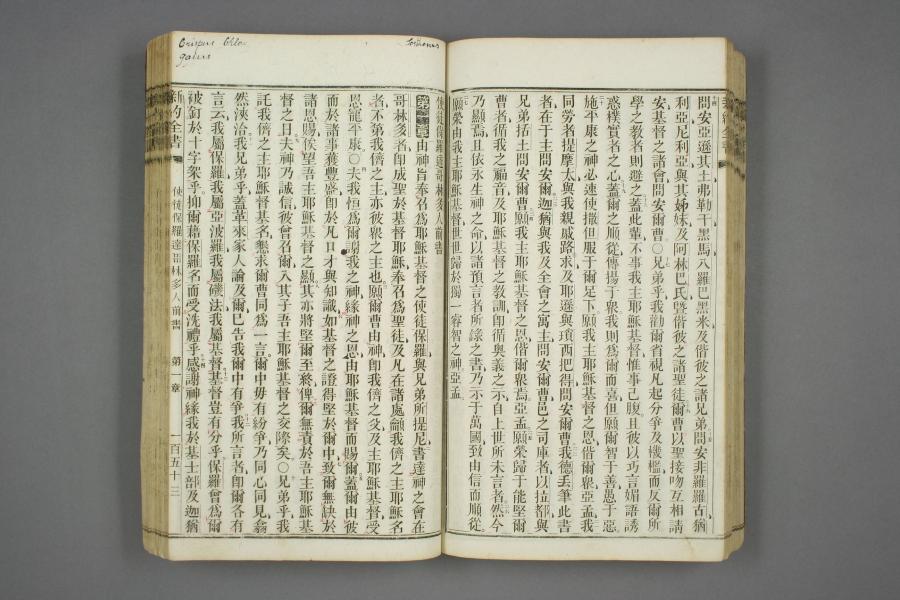 問安亞遜其土弗勒干黑馬八羅巴黑米及偕彼之諸兄弟問安非羅羅古猶
利亞尼利亞與其姊妹及阿林巴氏曁偕彼之諸聖徒爾曹以聖接吻互相請
安基督之諸會問安爾曹○兄弟乎我勸爾省視凡起分爭及機檻而反爾所
學之教者則避之蓋此輩不事我主耶穌基督惟事己腹且彼以巧言媚語誘
惑樸實者之心蓋爾之順從傳揚于衆我則爲爾而喜但願爾智于善愚于惡
施平康之神必速使撒但服于爾足下願我主耶穌基督之恩偕爾衆亞孟我
同勞者提摩太與我親戚路求及耶遜與瑣西把得問安爾曹我德丟筆此書
者在于主問安爾曹迦猶與我及全會之寓主問安爾曹邑之司庫者以拉都與
兄弟括土問安爾曹願我主耶穌基督之恩偕爾衆焉亞孟願榮歸于能堅爾
曹者循我之福音及耶穌基督之教訓卽循奧義之示自上世所未言者然今
乃顯焉且依永生神之命以諸預言者所錄之書乃示于萬國致由信而順從
願榮由我主耶穌基督世世歸於獨一睿智之神亞孟
Crispus Chloe
gaius
Sosthenes
使徒保羅達哥林多人前書
第一章 由神旨奉召爲耶穌基督之使徒保羅與兄弟所提尼書達神之會在
哥林多者卽成聖於基督耶穌奉召爲聖徒及凡在諸處籲我儕之主耶穌名
者不第我儕之主亦彼衆之主也願爾曹由神卽我儕之父及主耶穌基督受
恩寵平康○夫我恒爲爾謝我之神緣神之恩由耶穌基督而賜爾蓋爾由彼
而於諸事獲豐盛卽於凡口才與知識如基督之證得堅於爾中致爾無缺於
諸恩賜俟望吾主耶穌基督之顯其亦將堅爾至終俾爾無責於吾主耶穌基
督之日夫神乃誠信彼曾召爾入其子吾主耶穌基督之交際矣○兄弟乎我
託我儕之主耶穌基督名懇求爾曹同爲一言爾中毋有紛爭乃同心同見翕
然浹洽我兄弟乎蓋革來家人論及爾已告我爾中有爭我所言者卽爾各有
言云我屬保羅我屬亞波羅我屬磯法我屬基督基督豈有分乎保羅曾爲爾
被釘於十字架乎抑爾藉保羅名而受洗禮乎感謝神緣我於基士部及迦猶
新約全書 使徒保羅達哥林多人前書 第一章 一百五十三